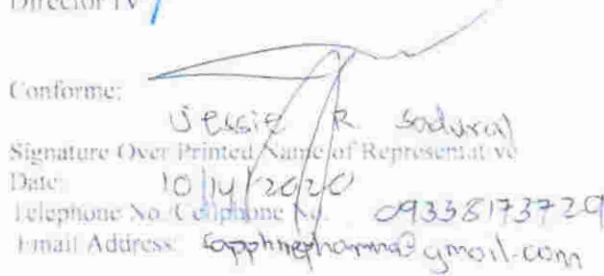 Director IV
Conforme:
Jessie R. Sadural
Signature Over Printed Name of Representative
Date: 10/14/2020
Telephone No./Cellphone No. 09338173729
Email Address: @gmail.com